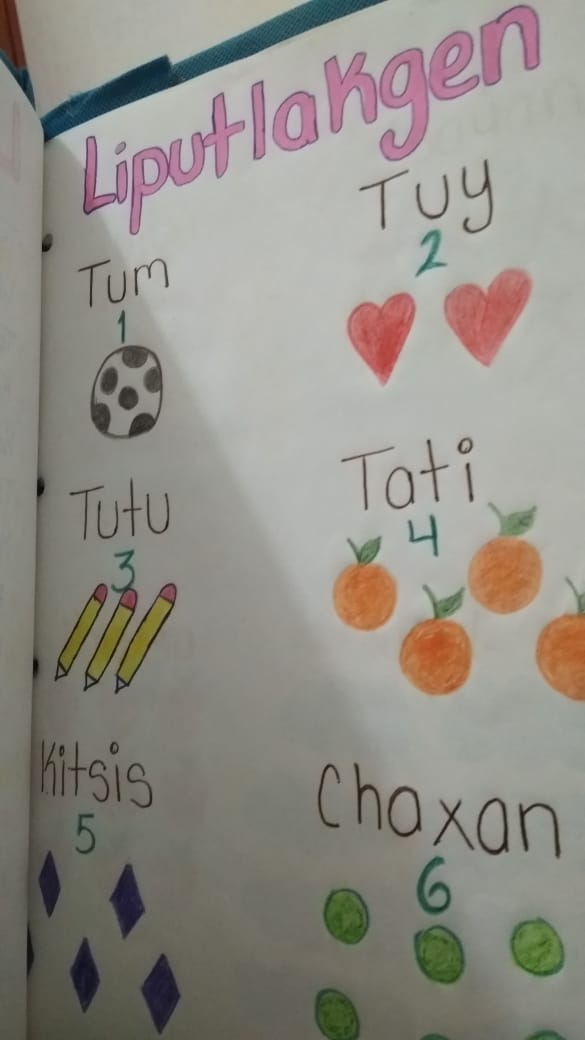 Liputlakgen
Tum
1
Tuy
2
Tutu
3
Tati
4
Kitsis
5
Chaxan
6